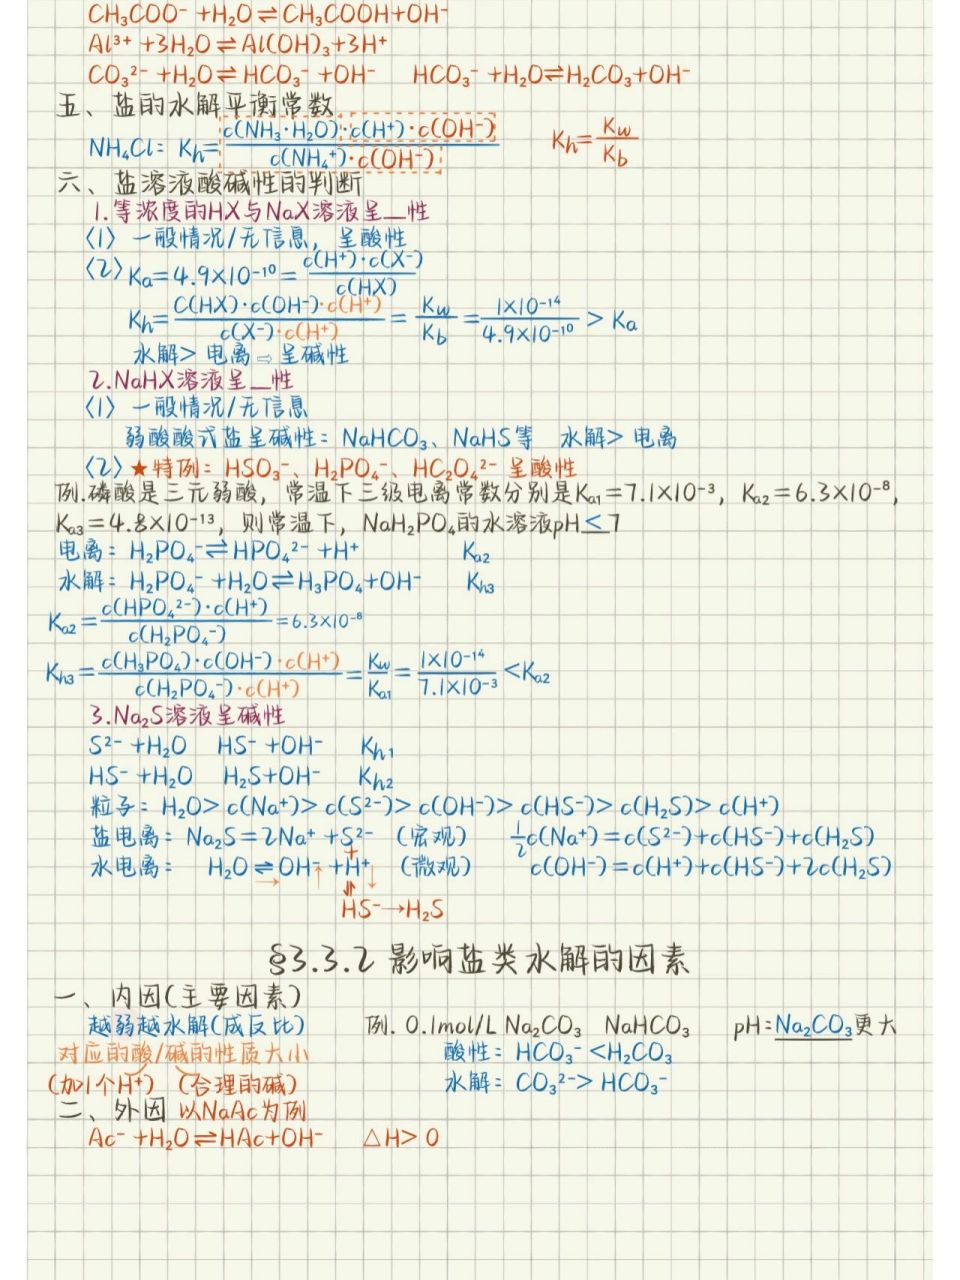 CH₃COO⁻ +H₂O⇌CH₃COOH+OH⁻
Al³⁺ +3H₂O⇌Al(OH)₃+3H⁺
CO₃²⁻ +H₂O⇌HCO₃⁻ +OH⁻ HCO₃⁻ +H₂O⇌H₂CO₃+OH⁻
五、盐的水解平衡常数
NH₄Cl: Kh= c(NH₃·H₂O)·c(H⁺)·c(OH⁻) / c(NH₄⁺)·c(OH⁻) Kh= Kw / Kb
六、盐溶液酸碱性的判断
1.等浓度的HX与NaX溶液呈__性
〈1〉 一般情况/无信息, 呈酸性
〈2〉 Ka=4.9×10⁻¹⁰= c(H⁺)·c(X⁻) / c(HX)
Kh= C(HX)·c(OH⁻)·c(H⁺) / c(X⁻)·c(H⁺) = Kw / Kb = 1×10⁻¹⁴ / 4.9×10⁻¹⁰ > Ka
水解> 电离 ⇨ 呈碱性
2.NaHX溶液呈__性
〈1〉 一般情况/无信息
弱酸酸式盐呈碱性: NaHCO₃、NaHS等 水解> 电离
〈2〉 ★特例: HSO₃⁻、H₂PO₄⁻、HC₂O₄²⁻ 呈酸性
例.磷酸是三元弱酸, 常温下三级电离常数分别是Ka1=7.1×10⁻³, Ka2=6.3×10⁻⁸,
Ka3=4.8×10⁻¹³, 则常温下, NaH₂PO₄的水溶液pH<7
电离: H₂PO₄⁻⇌HPO₄²⁻ +H⁺ Ka2
水解: H₂PO₄⁻ +H₂O⇌H₃PO₄+OH⁻ Kh3
Ka2= c(HPO₄²⁻)·c(H⁺) / c(H₂PO₄⁻) =6.3×10⁻⁸
Kh3= c(H₃PO₄)·c(OH⁻)·c(H⁺) / c(H₂PO₄⁻)·c(H⁺) = Kw / Ka1 = 1×10⁻¹⁴ / 7.1×10⁻³ <Ka2
3.Na₂S溶液呈碱性
S²⁻ +H₂O HS⁻ +OH⁻ Kh1
HS⁻ +H₂O H₂S+OH⁻ Kh2
粒子: H₂O> c(Na⁺)> c(S²⁻)> c(OH⁻)> c(HS⁻)> c(H₂S)> c(H⁺)
盐电离: Na₂S=2Na⁺ +S²⁻ (宏观) ½c(Na⁺)=c(S²⁻)+c(HS⁻)+c(H₂S)
+
水电离: H₂O⇌OH⁻↑ +H⁺↓ (微观) c(OH⁻)=c(H⁺)+c(HS⁻)+2c(H₂S)
→
⥮
HS⁻→H₂S
§3.3.2 影响盐类水解的因素
一、内因(主要因素)
越弱越水解(成反比) 例. 0.1mol/L Na₂CO₃ NaHCO₃ pH:Na₂CO₃更大
对应的酸/碱的性质大小 酸性: HCO₃⁻ <H₂CO₃
(加1个H⁺) (合理的碱) 水解: CO₃²⁻> HCO₃⁻
二、外因 以NaAc为例
Ac⁻ +H₂O⇌HAc+OH⁻ △H> 0